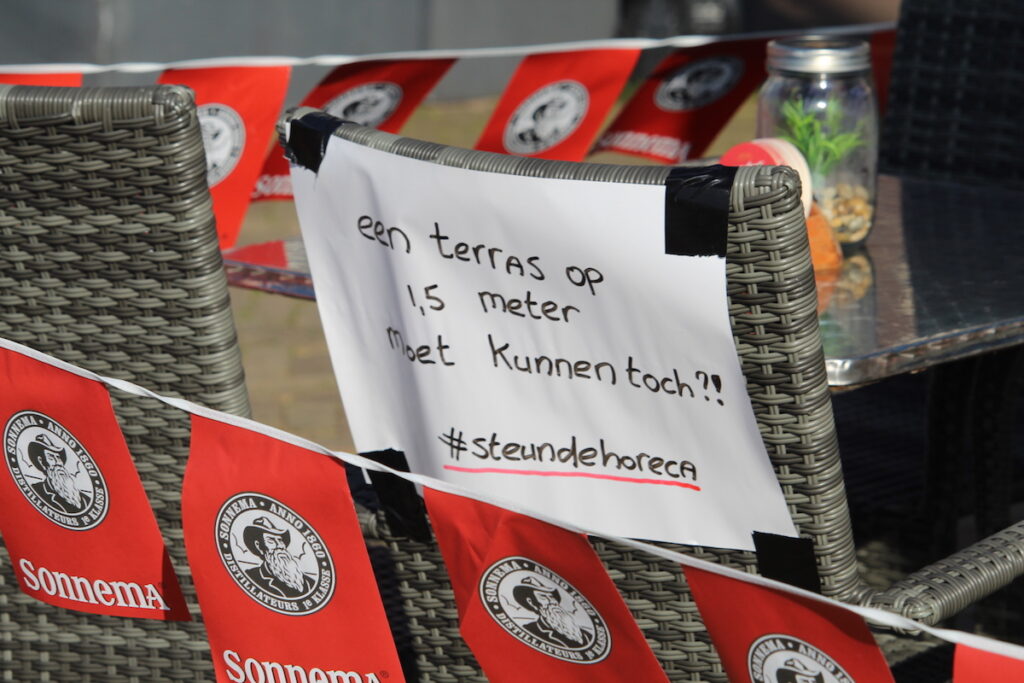 een terras op
1,5 meter
moet kunnen toch?!
#steundehoreca
SONNEMA • ANNO 1860 •
DISTILLATEURS 1E KLASSE
SONNEMA
SONNEMA • ANNO 1860 •
DISTILLATEURS 1E KLASSE
SONNEMA®
SONNEMA • ANNO 1860 •
DISTILLATEURS 1E KLASSE
SONNEMA • ANNO 1860